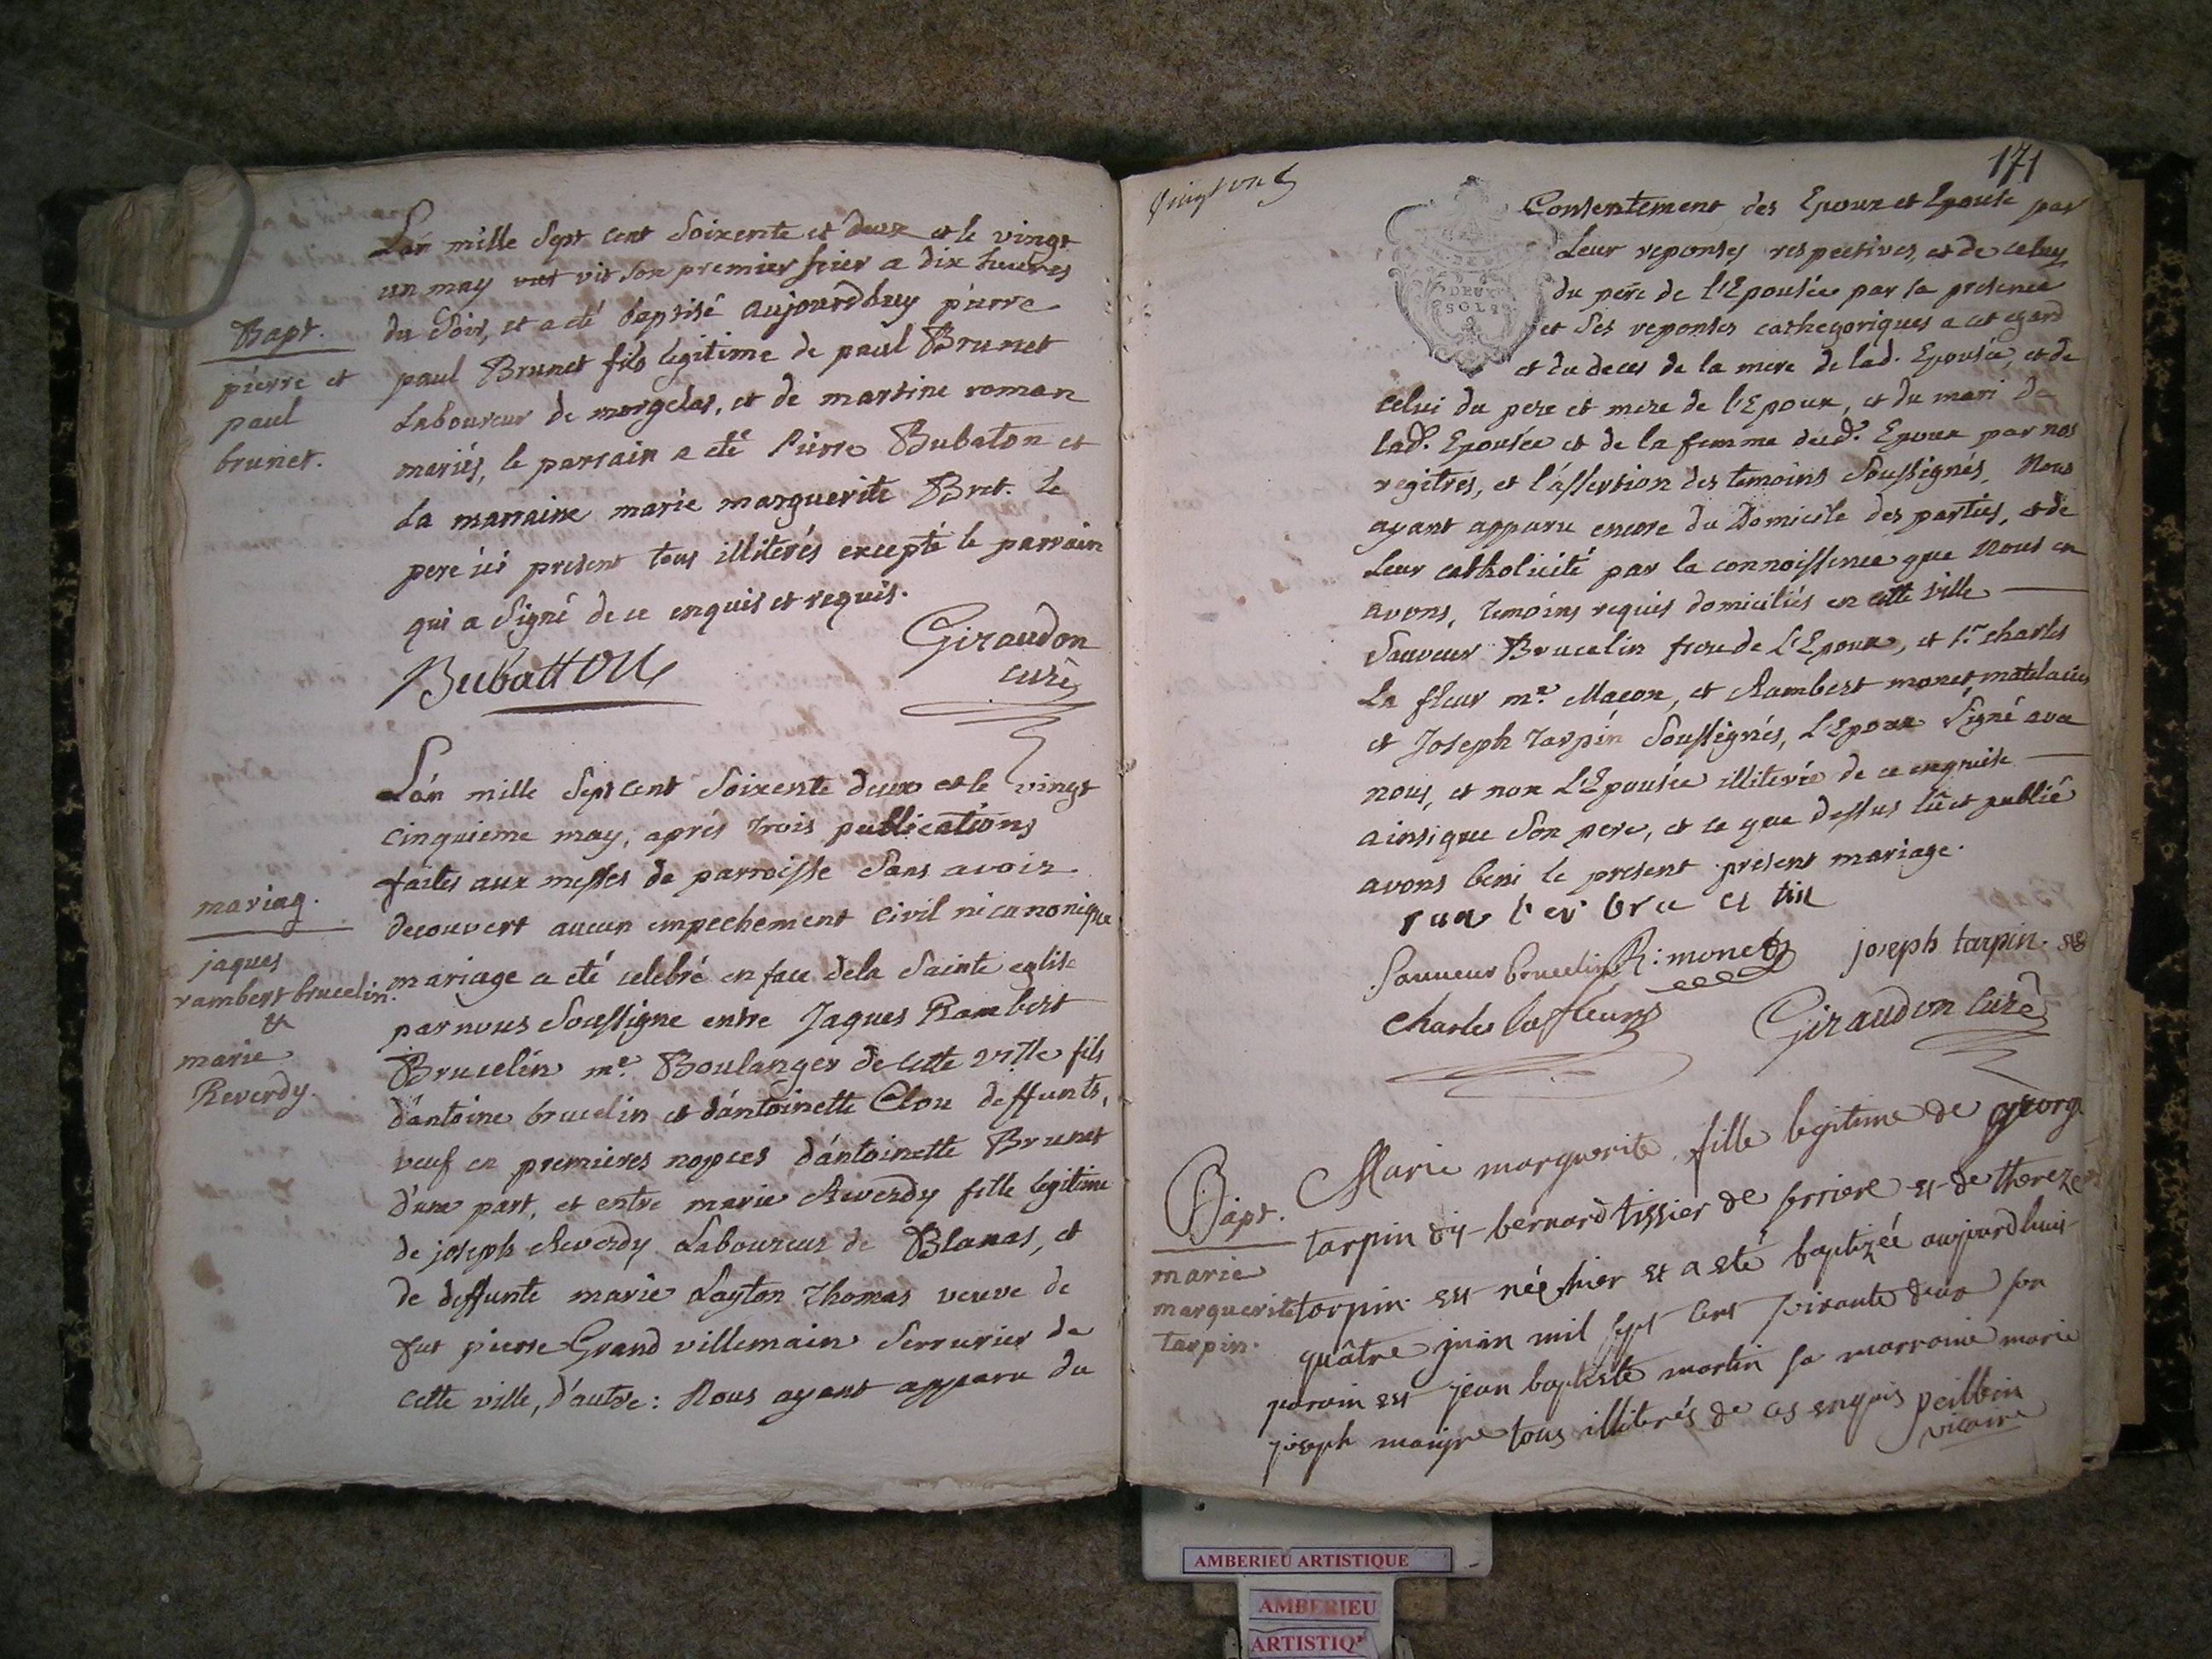 L'an mille sept cent soixente et deux et le vingt
un may vit son premier hier a dix heures
du soir, et a eté baptisé aujourdhuy pierre
paul Brunet fils legitime de paul Brunet
Laboureur de morgelas, et de martine roman
mariés, le parrain a eté Pierre Bubaton et
La marraine marie marguerite Bret. Le
pere ici present tous illiterés excepté le parrain
qui a signé de ce enquis et requis.
Bubatton
Giraudon
curé
Bapt.
pierre et
paul
brunet.
L'an mille sept cent soixente deux et le vingt
cinquieme may, apres trois publications
faites aux messes de parroisse sans avoir
decouvert aucun empechement civil ni canonique
mariage a eté celebré en face dela sainte eglise
par nous soussigne entre Jaques Rambert
Brucelin me. Boulanger de cette ville fils
d'antoine brucelin et d'antoinette Clou deffunts,
veuf en premieres nopces d'antoinette Brunet
d'une part, et entre marie Reverdy fille legitime
de joseph Reverdy Laboureur de Blanas, et
de deffunte marie Layton Thomas veuve de
fut pierre Grand villemain serrurier de
cette ville, d'autre : Nous ayant apparu du
mariag.
jaques
rambert brucelin.
&
marie
Reverdy.
vingt un
171
Consentement des Epoux et Epouse par
Leur reponses respectives, et de celuy
du pere de l'Epousée par sa presence
et ses reponses cathegoriques a cet egard
et du deces de la mere de lad. Epousée, et de
celui du pere et mere de l'Epoux, et du mari de
lad. Epousée et de la femme dud. Epoux par nos
regitres, et l'assertion des temoins soussignés, Nous
ayant apparu encore du Domicile des parties, et de
Leur catholicité par la connoissence que Nous en
avons, temoins requis domiciliés en cette ville
Sauveur Brucelin frere de L'Epoux, et sr. charles
La fleur me. Macon, et Rambert monet matelacier
et Joseph Tarpin soussignés, L'Epoux signé avec
nous, et non L'Epousée illiterée de ce enquise
ainsi que son pere, et ce que dessus lû et publié
avons beni le present present mariage.
DEUX
SOLS
Sauveur brucelin R: monet joseph tarpin
charles lafleur
Giraudon curé
Marie marguerite fille legitime de george
tarpin dit bernard tissier de ferriere et de thereze
tarpin est née hier et a esté baptizée aujourdhuis
quâtre juin mil sept cent soixante deux son
parain est jean baptiste martin sa marraine marie
joseph maigre tous illiterés de ces enquis peilbin
vicaire
Bapt.
marie
marguerite
tarpin.
AMBERIEU ARTISTIQUE
AMBERIEU
ARTISTIQ